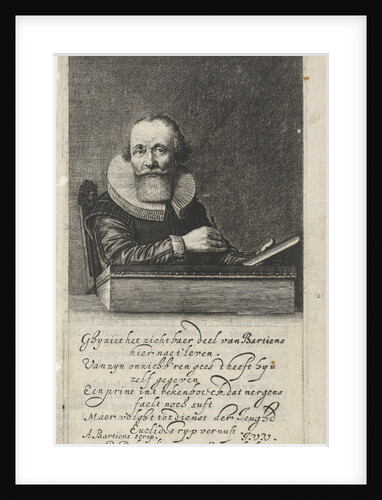 Ghy ziet het zichtbaer deel van Bartiens
hier nae t'leven.
Van zyn onzichb'ren geest heeft hy u
zelf gegeven
Een print int rekenboeck dat nergens
faelt noch suft
Maer volght tot dienst der Jeughd
Euclidus ryp vernuft.
A. Bartiens scrip. I.V.V.